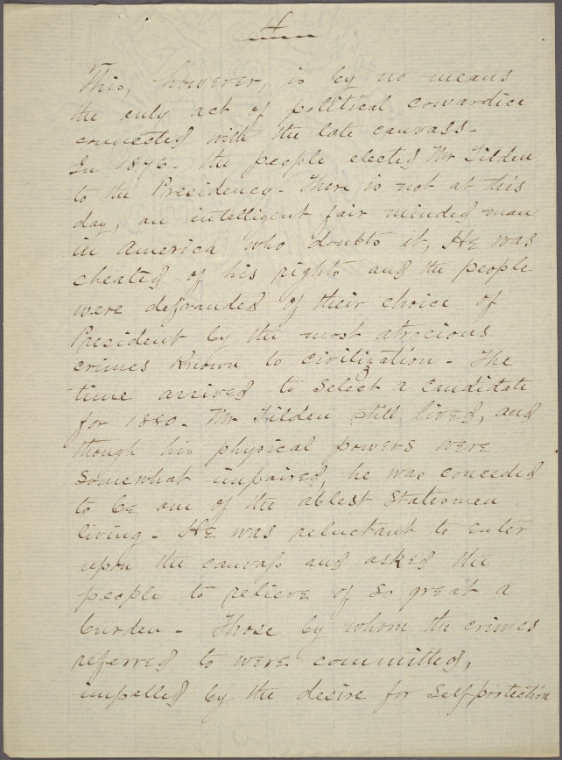 4
This, however, is by no means
the only act of political cowardice
connected with the late canvass.
In 1876. the people elected Mr Tilden
to the Presidency. There is not at this
day, an intelligent fair minded man
in America who doubts it, He was
cheated of his rights and the people
were defrauded of their choice of
President by the most atrocious
crimes known to civilization. The
time arrived to select a candidate
for 1880. Mr Tilden still lived, and
though his physical powers were
somewhat impaired, he was conceded
to be one of the ablest Statesmen
living. He was reluctant to enter
upon the canvass and asked the
people to relieve of so great a
burden. Those by whom the crimes
referred to were committed,
impelled by the desire for self protection